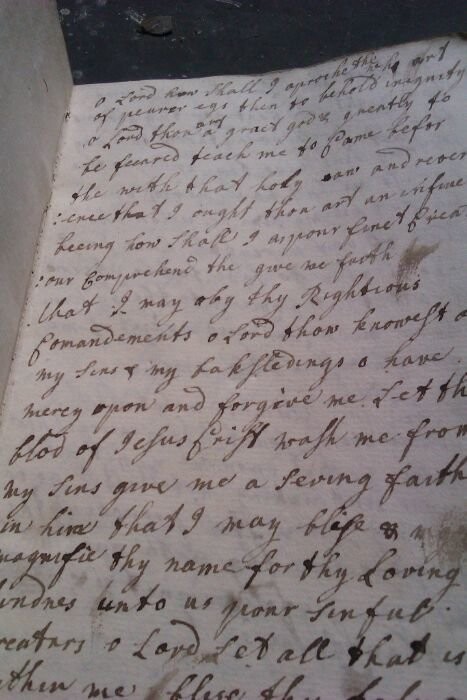 o Lord how shall I aproche the who art
of peurer eys then to behold iniquity
o Lord thou art a grat god & greatly to
be feared teach me to Came befor
the with that holy aw and rever
:ence that I ought thou art an infine
beeing how shall I a pour finet Crea
:our Comprehend the give me faith
that I may oby thy Rightious
Comandements o Lord thow knowest a
my sins & my baksledings o have
mercy upon and forgive me Let th
blod of Jesus Crist wash me from
my sins give me a seving faith
in him that I may blese & m
magnifie thy name for thy Loving
kindnes unto us pour sinful
creaturs o Lord Let all that is
within me bless thy